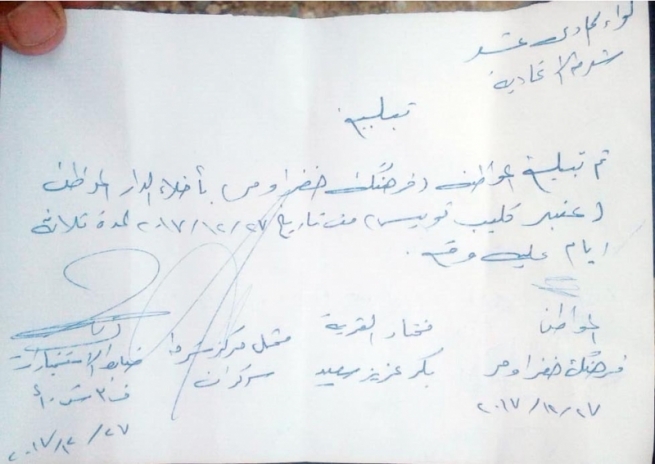 لواء الحادي عشر
شرطة الاتحادية
تبليغ
تم تبليغ المواطن (فرهنگ خضر اومر) بأخلاء الدار المواطن
(عنبر قليب تويس) من تاريخ ٢٠١٧/١٢/٢٧ لمدة ثلاثة
ايام عليه وقع.
المواطن
فرهنگ خضر اومر
٢٠١٧/١٢/٢٧
مختار القرية
بكر عزيز سعيد
ممثل مركز شرطة
سرگران
ضابط الاستخبارات
ف٣
٢٠١٧/١٢/٢٧